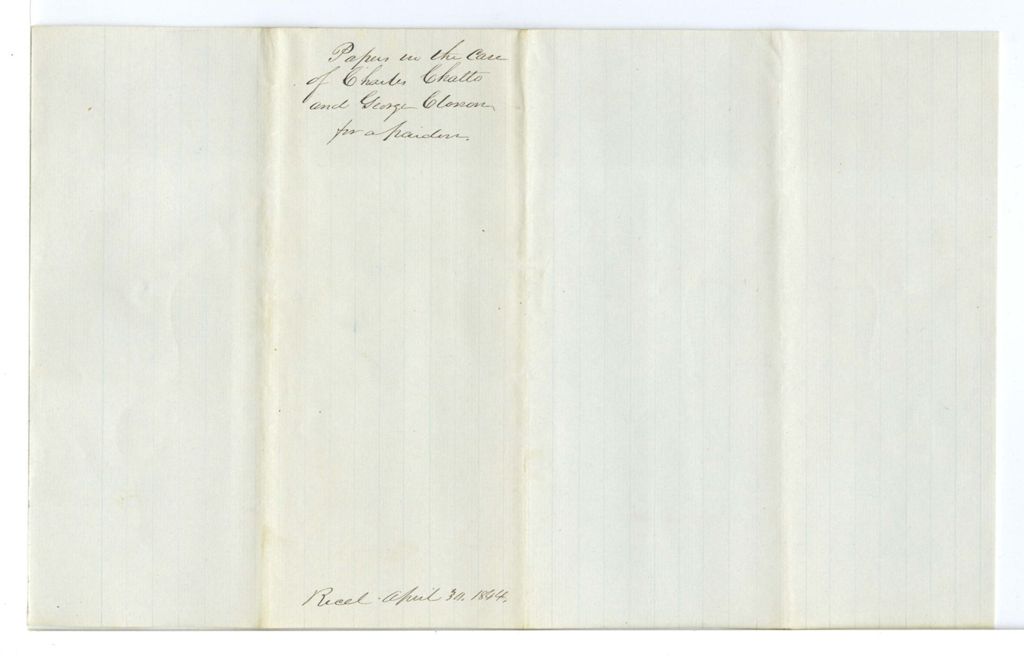 Papers in the case
of Charles Chatto
and George Closson
for a pardon.
Recd. April 30. 1844.